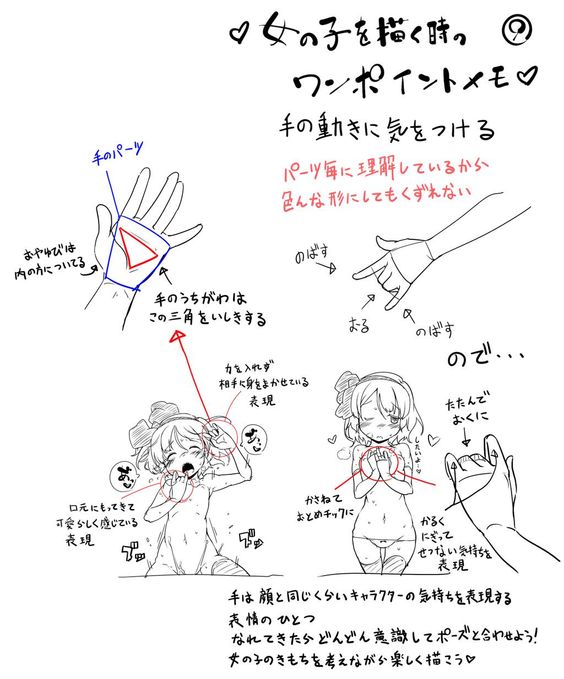 ♡女の子を描く時の ⑨
ワンポイントメモ♡
手の動きに気をつける
パーツ毎に理解しているから
色んな形にしてもくずれない
手のパーツ
おやゆびは
内の方についてる
手のうちがわは
この三角をいしきする
のばす
おる
のばす
ので・・・
力を入れず
相手に身をまかせている
表現
口元にもってきて
可愛らしく感じている
表現
たたんで
おくに
かさねて
おとめチックに
かるく
にぎって
せつない気持ちを
表現
手は顔と同じくらいキャラクターの気持ちを表現する
表情のひとつ
なれてきた分どんどん意識してポーズと合わせよう!
女の子のきもちを考えながら楽しく描こう♡